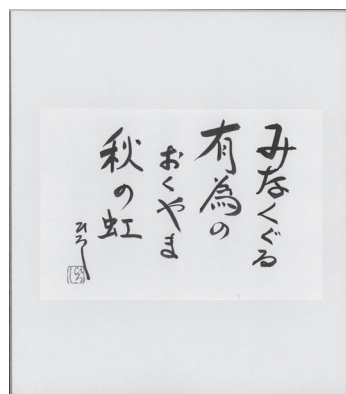 みなくぐる
有為の
おくやま
秋の虹
ひろし